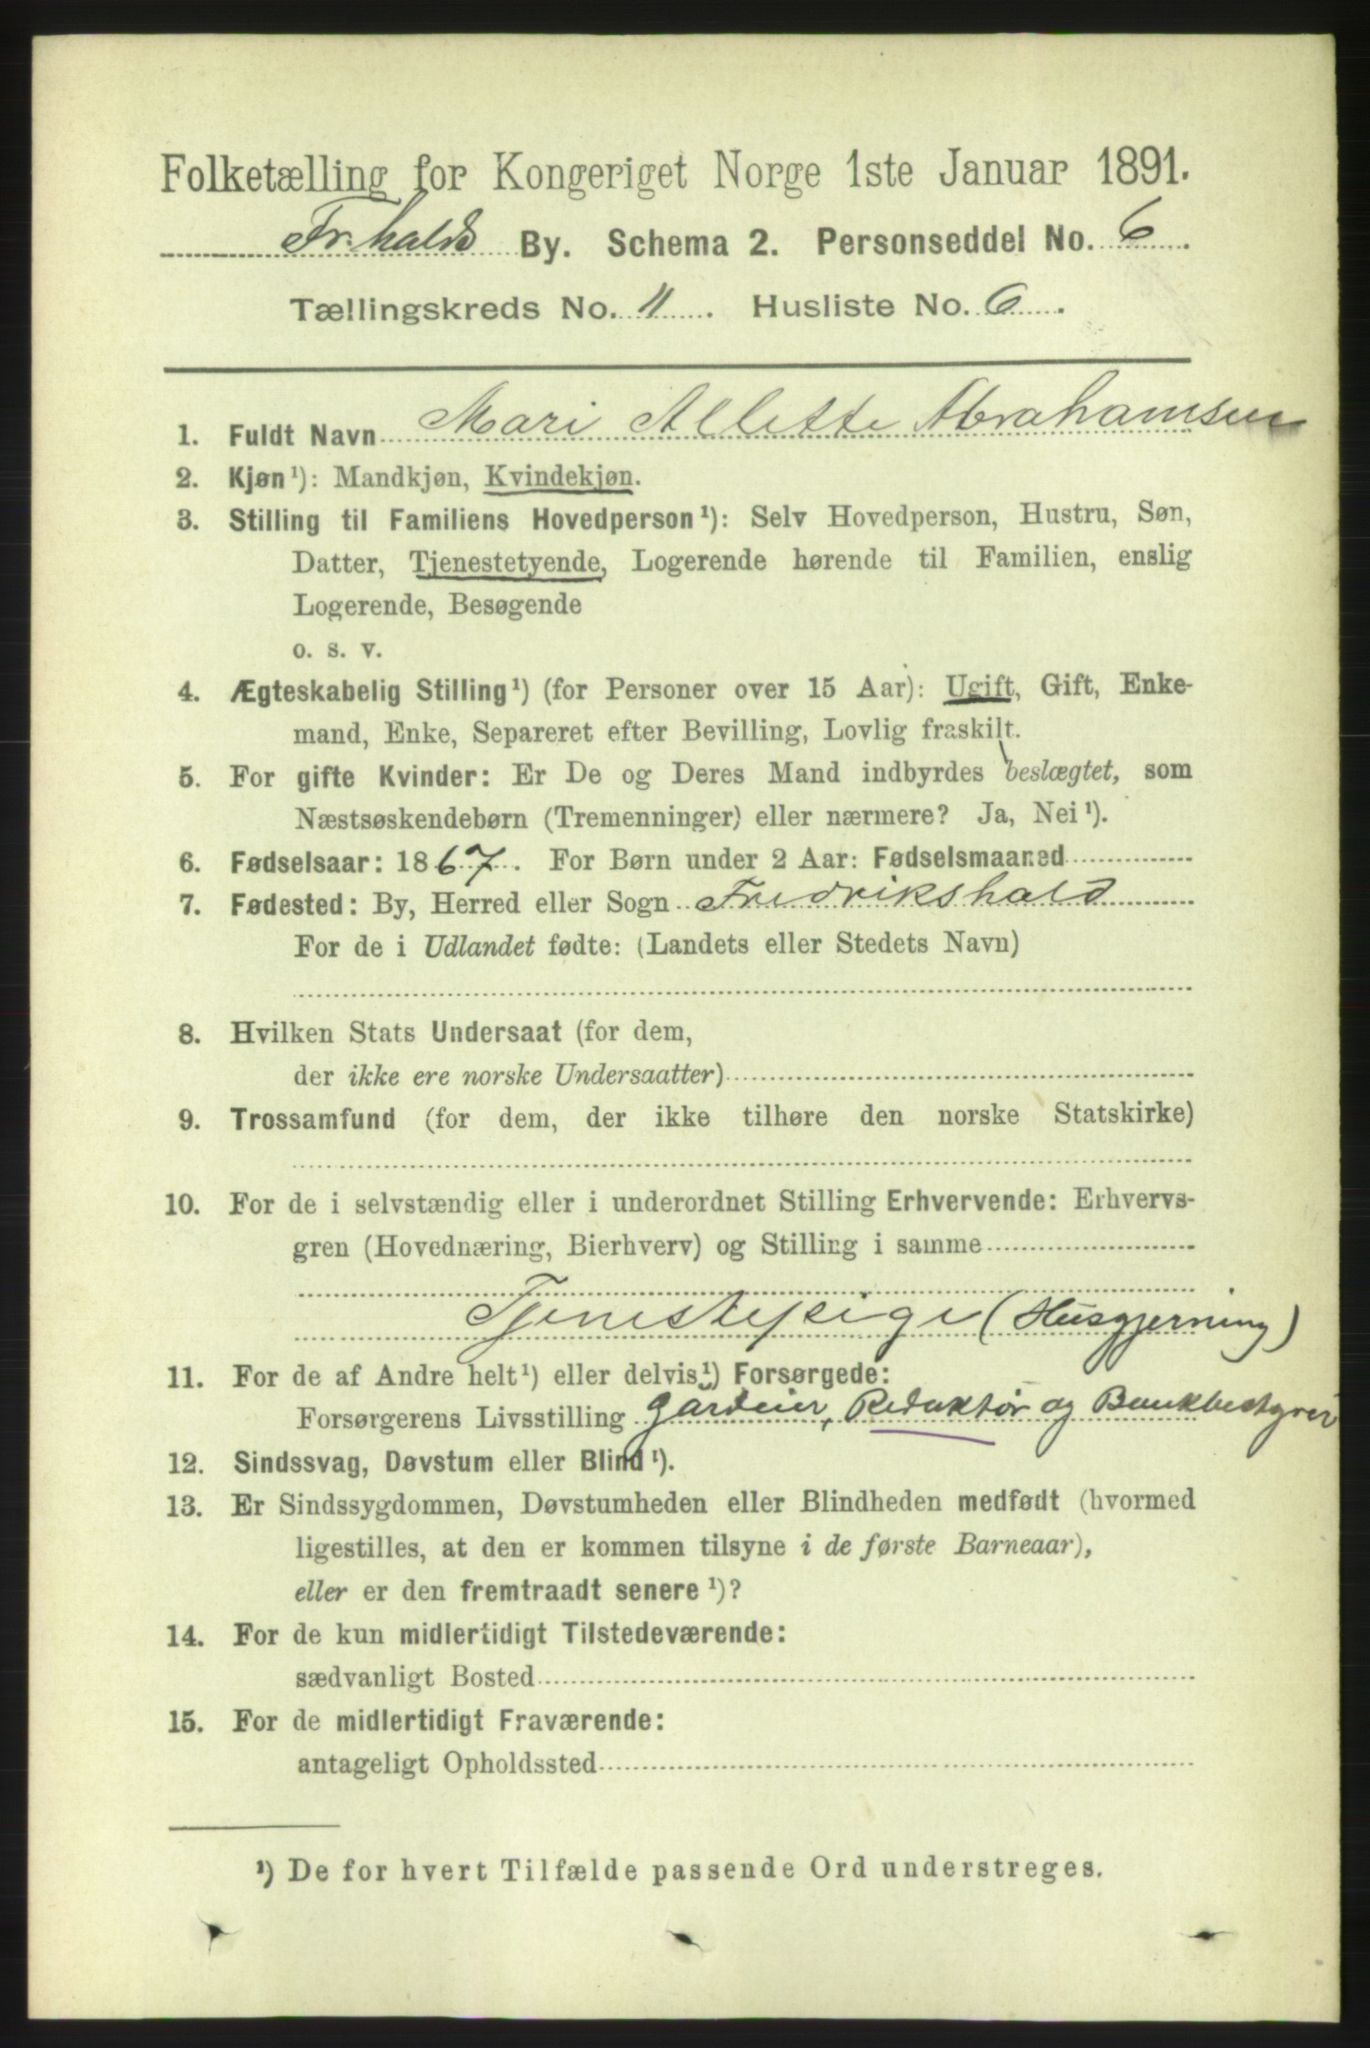 Folketælling for Kongeriget Norge 1ste Januar 1891.
Fr.hald By. Schema 2. Personseddel No. 6.
Tællingskreds No. 11. Husliste No. 6.
1. Fuldt Navn Mari Allette Abrahamsen
2. Kjøn¹): Mandkjøn, Kvindekjøn.
3. Stilling til Familiens Hovedperson¹): Selv Hovedperson, Hustru, Søn,
Datter, Tjenestetyende, Logerende hørende til Familien, enslig
Logerende, Besøgende
o. s. v.
4. Ægteskabelig Stilling¹) (for Personer over 15 Aar): Ugift, Gift, Enke-
mand, Enke, Separeret efter Bevilling, Lovlig fraskilt.
5. For gifte Kvinder: Er De og Deres Mand indbyrdes beslægtet, som
Næstsøskendebørn (Tremenninger) eller nærmere? Ja, Nei¹).
6. Fødselsaar: 1867. For Børn under 2 Aar: Fødselsmaaned
7. Fødested: By, Herred eller Sogn Fredrikshald
For de i Udlandet fødte: (Landets eller Stedets Navn)
8. Hvilken Stats Undersaat (for dem,
der ikke ere norske Undersaatter)
9. Trossamfund (for dem, der ikke tilhøre den norske Statskirke)
10. For de i selvstændig eller i underordnet Stilling Erhvervende: Erhvervs-
gren (Hovednæring, Bierhverv) og Stilling i samme
Tjenestepige (Husgjerning)
11. For de af Andre helt¹) eller delvis¹) Forsørgede:
Forsørgerens Livsstilling Gårdeier, Redaktør og Bankbestyrer
12. Sindssvag, Døvstum eller Blind¹).
13. Er Sindssygdommen, Døvstumheden eller Blindheden medfødt (hvormed
ligestilles, at den er kommen tilsyne i de første Barneaar),
eller er den fremtraadt senere¹)?
14. For de kun midlertidigt Tilstedeværende:
sædvanligt Bosted
15. For de midlertidigt Fraværende:
antageligt Opholdssted
¹) De for hvert Tilfælde passende Ord understreges.